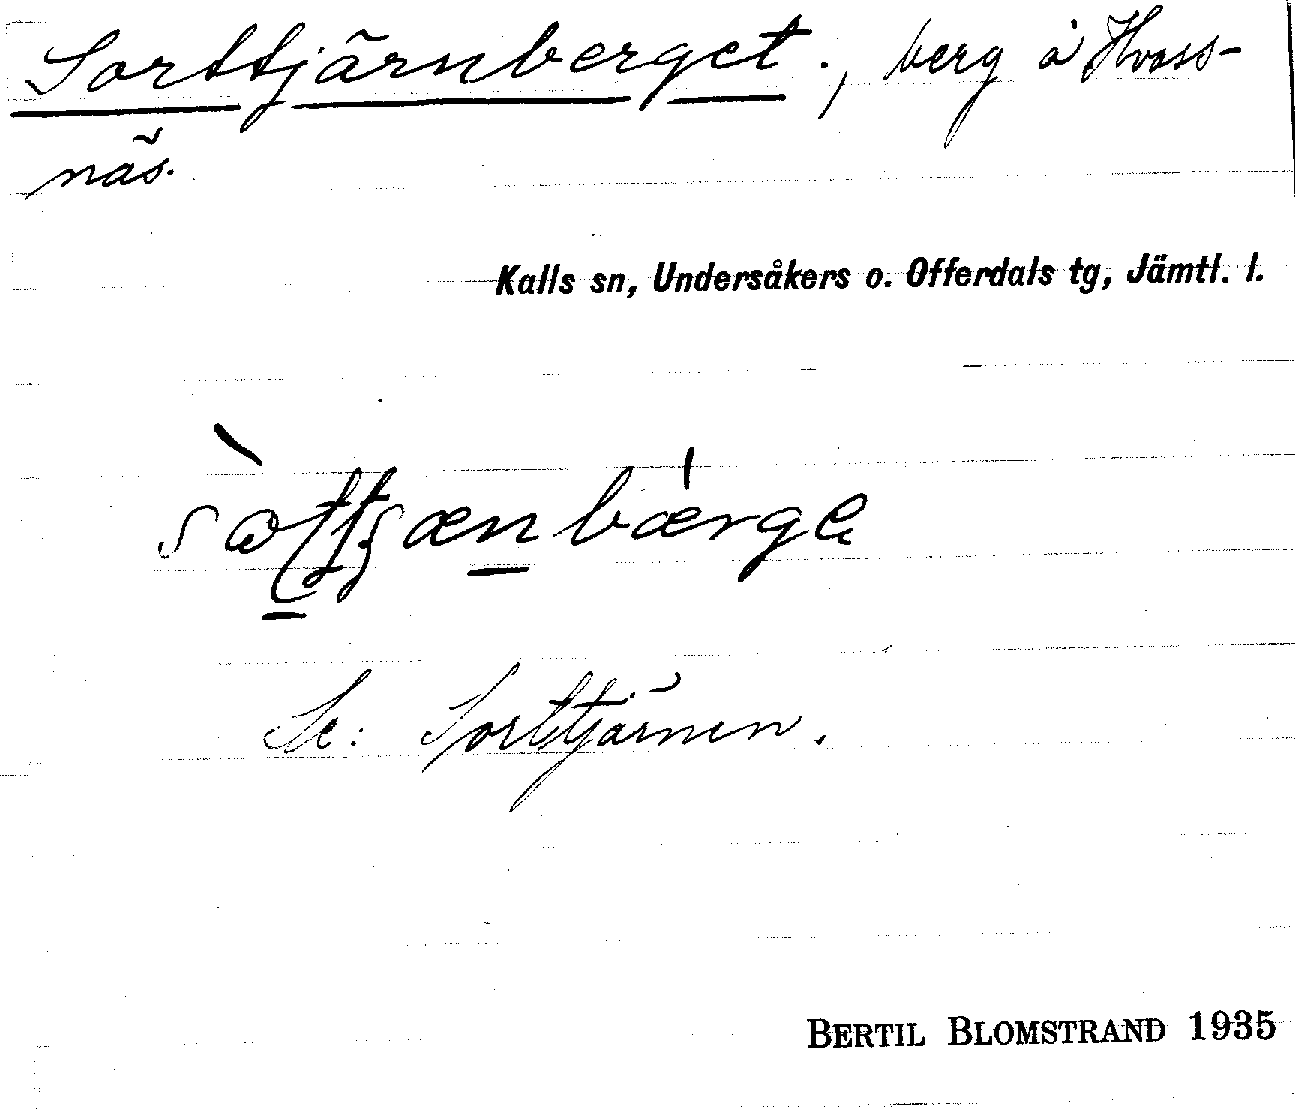 Sorttjärnberget., berg å Hvass-
näs.
Kalls sn, Undersåkers o. Offerdals tg, Jämtl. l.
Se: Sorttjärnen.
BERTIL BLOMSTRAND 1935